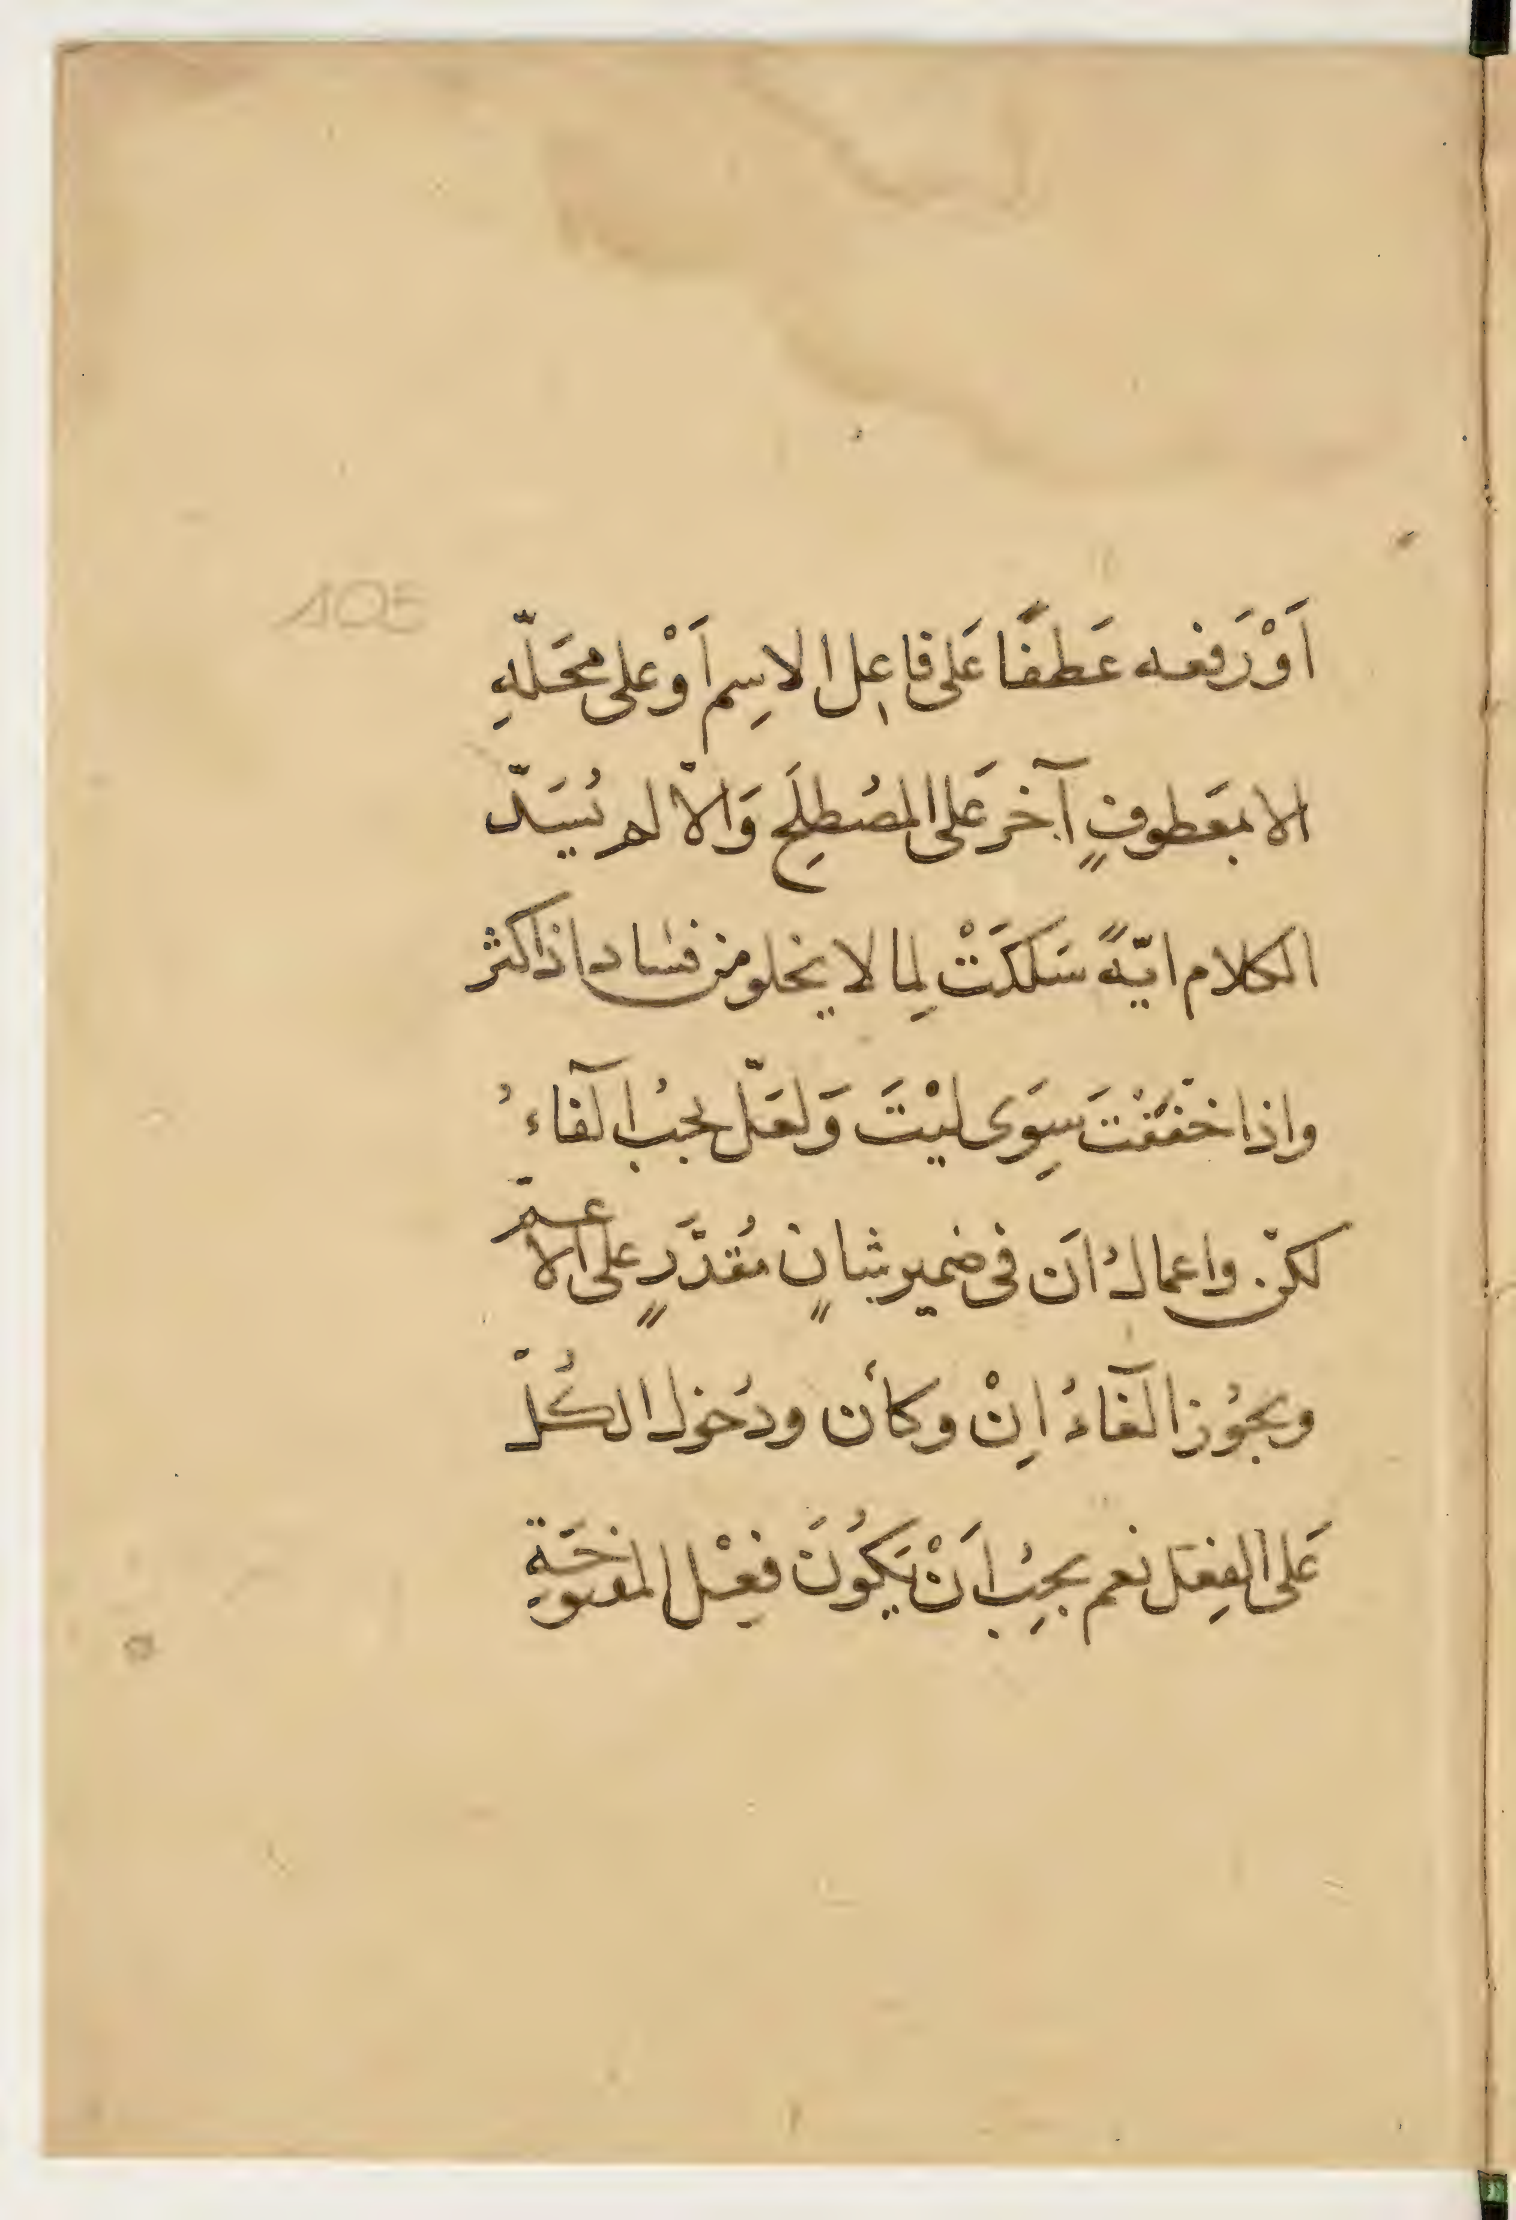 105
اَوْ رَفعه عَطفًا عَلى فاعِل الاسِم اَوْ على محَلّهِ
الا بمعَطوفٍ آخر عَلى المصُطلَحِ وَالاّ لم يُسَدّ
الكلام ايّةً سَلكَتْ لِما لا يخلو من فساد اذا كثر
واذا خفّفْتَ سِوَى ليْتَ وَلعَلّ يجبُ الغاءُ
لكنّ واعمالُ اَن فى ضمير شانٍ مُقدَّرٍ على الاعمّ
ويجوُز الغاءُ اِنْ وكأن ودُخول الكُلّ
عَلى الفِعَل نعم يجِبُ اَنْ يَكُونَ فِعْل المفتوحَةِ